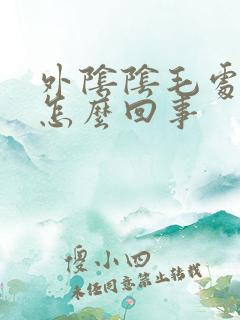 外陰陰毛處
怎麼回事
傻小四
未经同意禁止转载